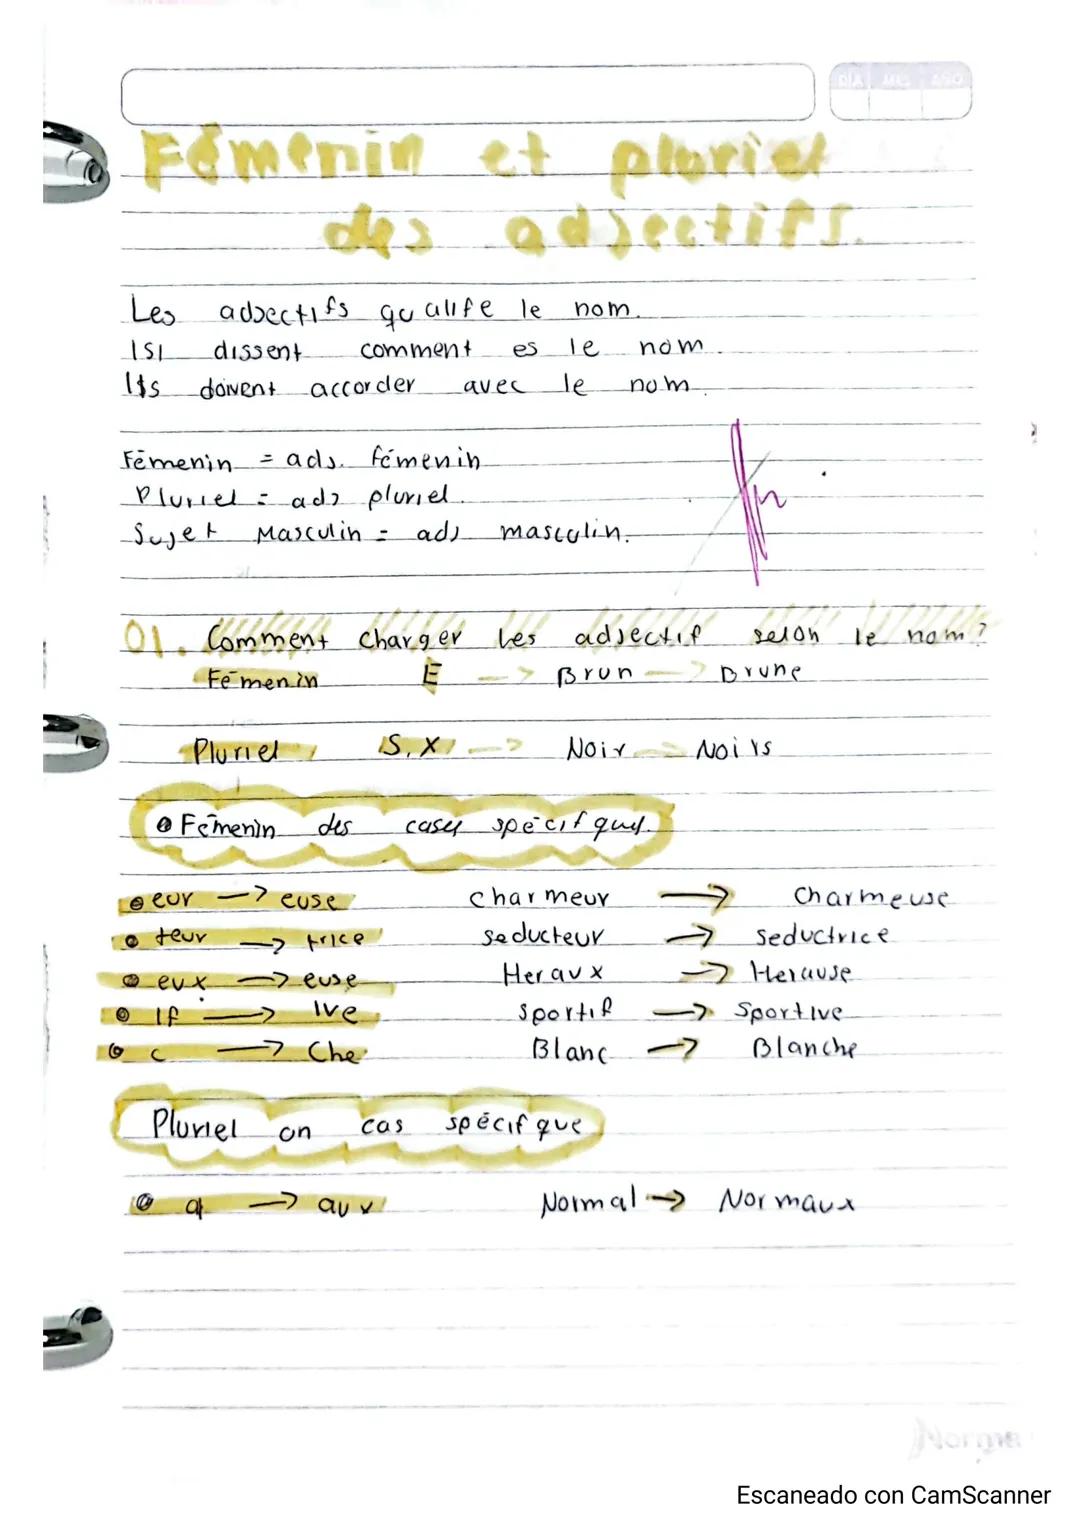 DÍA MES AÑO
Fémenin et pluriel
des adjectifs.
Les adjectifs qualife le nom.
ISI dissent comment es le nom.
Ils doivent accorder avec le nom.
Fémenin = adj. fémenin
Pluriel = adj pluriel.
Sujet Masculin = adj masculin.
01. Comment charger les adjectif selon le nom?
Fémenin E -> Brun -> Brune
Pluriel S, X -> Noir -> Noirs
Fémenin des cases spécifques.
eur -> euse charmeur -> Charmeuse
teur -> trice seducteur -> Seductrice
eux -> euse Heraux -> Herause
If -> Ive sportif -> Sportive
c -> Che Blanc -> Blanche
Pluriel on cas spécifque
al -> aux Normal -> Normaux
Norma
Escaneado con CamScanner